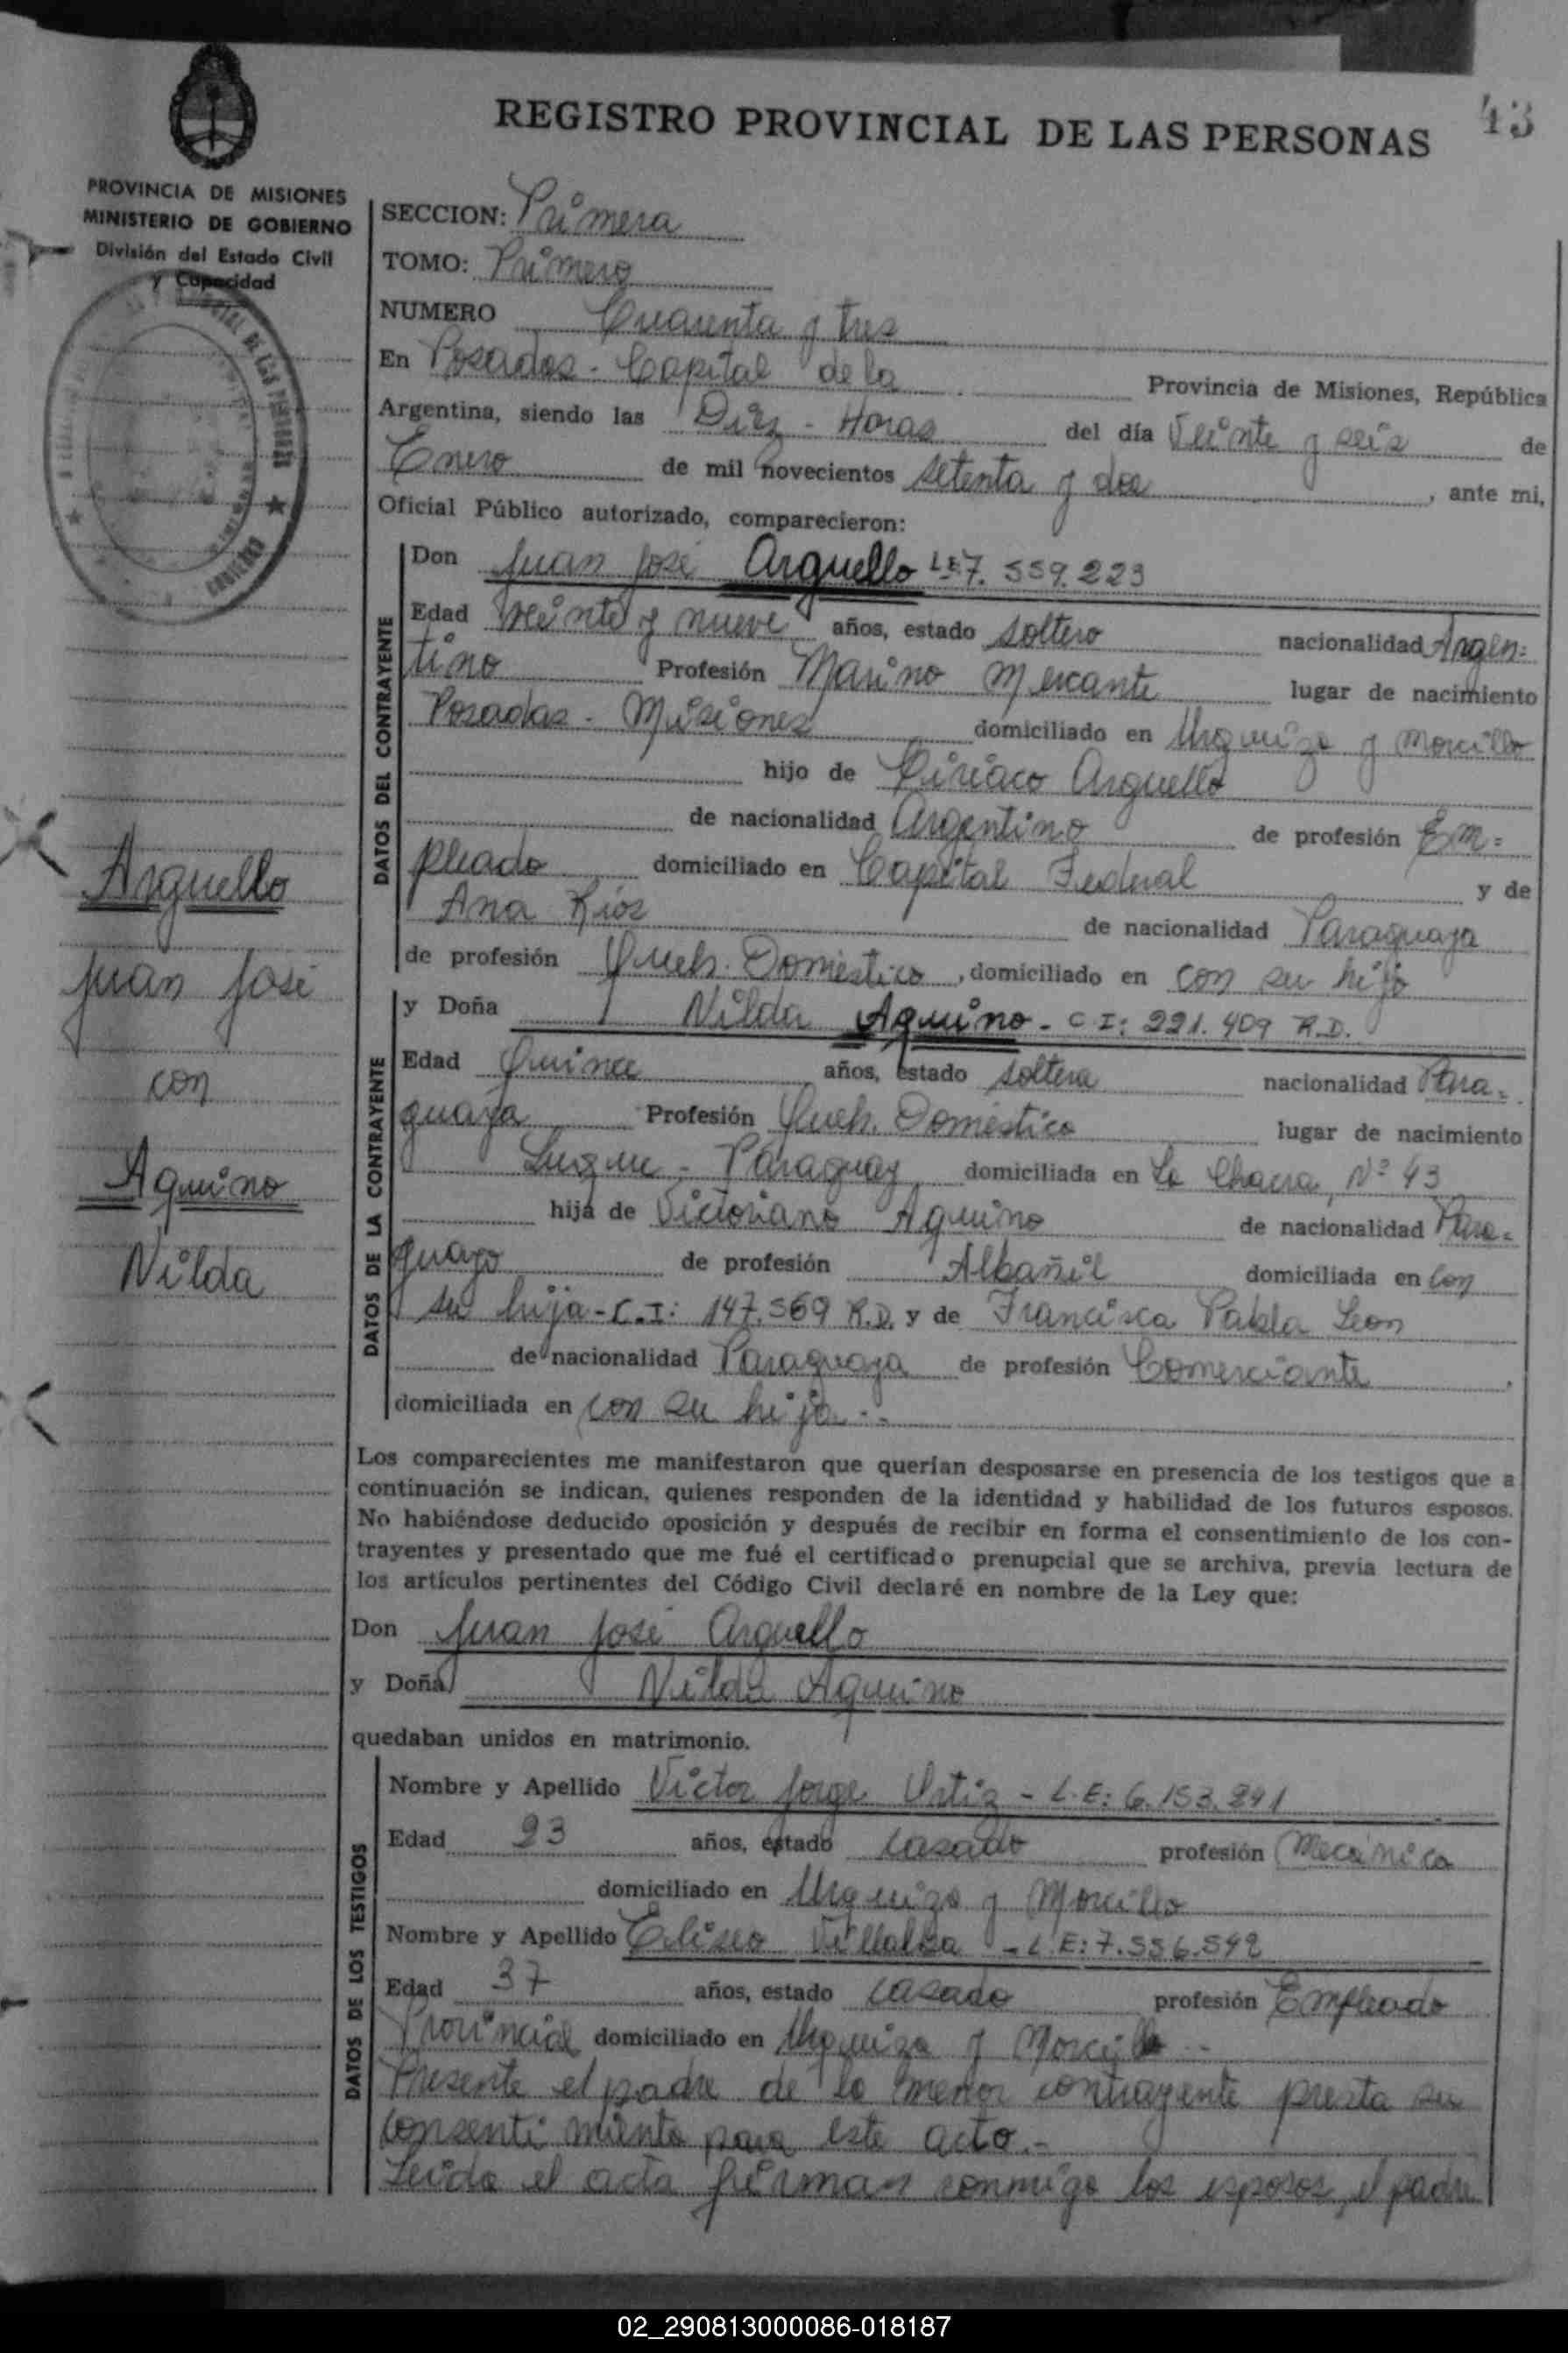 43
REGISTRO PROVINCIAL DE LAS PERSONAS
PROVINCIA DE MISIONES
MINISTERIO DE GOBIERNO
División del Estado Civil
y Capacidad
SECCION: Primera
TOMO: Primero
NUMERO Cuarenta y tres
En Posadas - Capital de la Provincia de Misiones, República
Argentina, siendo las Diez - Horas del día Veinte y seis de
Enero de mil novecientos setenta y dos, ante mi,
Oficial Público autorizado, comparecieron:
DATOS DEL CONTRAYENTE
Don Juan José Arguello L.E 7.559.223
Edad Veinte y nueve años, estado soltero nacionalidad Argen=
tino Profesión Marino Mercante lugar de nacimiento
Posadas - Misiones domiciliado en Urquiza y Morcillo
hijo de Ciriaco Arguello
de nacionalidad Argentino de profesión Em=
pleado domiciliado en Capital Federal y de
Ana Rios de nacionalidad Paraguaya
de profesión Queh. Doméstico, domiciliado en con su hijo
DATOS DE LA CONTRAYENTE
y Doña Nilda Aquino - C.I: 221.409 R.D.
Edad Quince años, estado soltera nacionalidad Para=
guaya Profesión Queh. Doméstico lugar de nacimiento
Luque - Paraguay domiciliada en La Chacra, Nº 43
hija de Victoriano Aquino de nacionalidad Para=
guayo de profesión Albañil domiciliada en Con
su hija - C.I: 147.569 R.D. y de Francisca Pabla Leon
de nacionalidad Paraguaya de profesión Comerciante
domiciliada en con su hija.-
Arguello
Juan José
con
Aquino
Nilda
Los comparecientes me manifestaron que querían desposarse en presencia de los testigos que a
continuación se indican, quienes responden de la identidad y habilidad de los futuros esposos.
No habiéndose deducido oposición y después de recibir en forma el consentimiento de los con-
trayentes y presentado que me fué el certificado prenupcial que se archiva, previa lectura de
los artículos pertinentes del Código Civil declaré en nombre de la Ley que:
Don Juan José Arguello
y Doña Nilda Aquino
quedaban unidos en matrimonio.
DATOS DE LOS TESTIGOS
Nombre y Apellido Victor Jorge Ortiz - L.E: 6.153.291
Edad 23 años, estado casado profesión Mecánica
domiciliado en Urquiza y Morcillo
Nombre y Apellido Eliseo Villalba - L.E: 7.556.592
Edad 37 años, estado casado profesión Empleado
Provincial domiciliado en Urquiza y Morcillo
Presente el padre de la menor contrayente presta su
consentimiento para este acto.-
Leida el acta firman conmigo los esposos, el padre
02_290813000086-018187